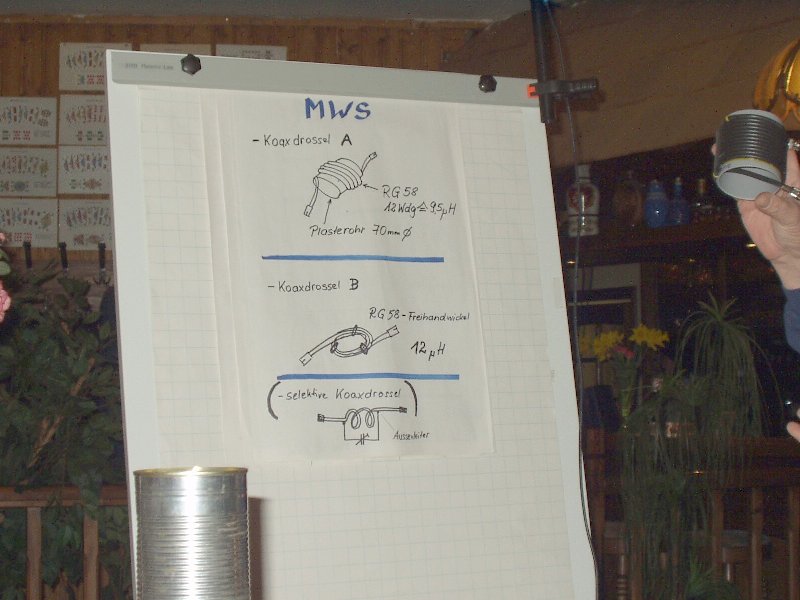 MWS
- Koaxdrossel A
RG 58
12 Wdg ≙ 9,5 µH
Plasterohr 70mm ø
- Koaxdrossel B
RG 58 - Freihandwickel
12 µH
(- selektive Koaxdrossel)
Aussenleiter